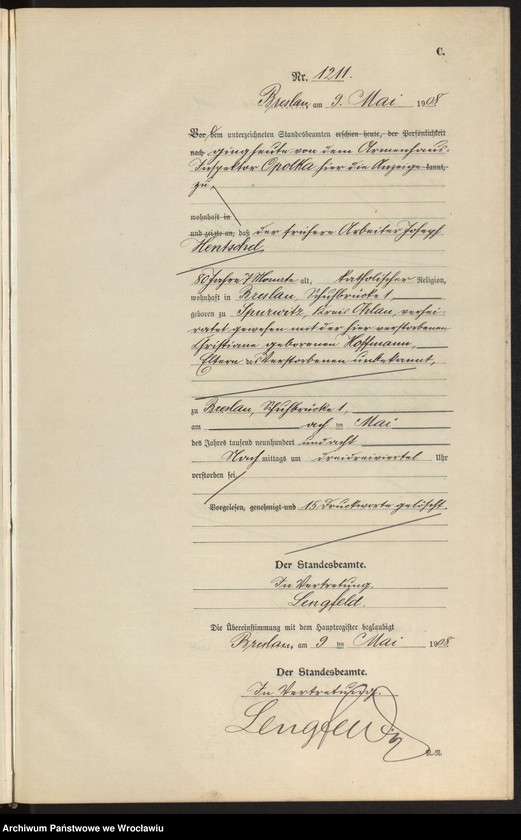 C.
Nr. 1211.
Breslau, am 9. Mai 1908
Vor dem unterzeichneten Standesbeamten erschien heute, der Persönlichkeit
nach ging heute von dem Armenhaus-
Inspektor Opolka hier die Anzeige kannt,
zu,
wohnhaft in
und zeigte an, daß der frühere Arbeiter Joseph
Hentschel,
80 Jahre 7 Monate alt, katholischer Religion,
wohnhaft in Breslau, Schuhbrücke 1,
geboren zu Kreis Ohlau, verhei-
ratet gewesen mit der hier verstorbenen
Christiane geborenen Hoffmann,
Eltern des Verstorbenen unbekannt,
zu Breslau, Schuhbrücke 1,
am acht im Mai
des Jahres tausend neunhundert und acht
Nachmittags um dreidreiviertel Uhr
verstorben sei.
Vorgelesen, genehmigt und 15 Druckworte gelöscht.
Der Standesbeamte.
In Vertretung.
Lengfeld.
Die Übereinstimmung mit dem Hauptregister beglaubigt
Breslau, am 9 ten Mai 1908
Der Standesbeamte.
In Vertretung.
Lengfeld
Archiwum Państwowe we Wrocławiu